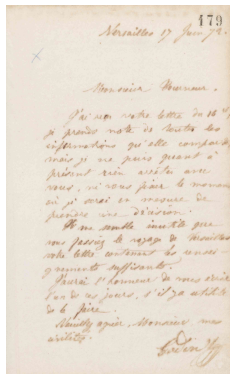 179
Versailles 17 Juin 72.
Monsieur
J'ai reçu votre lettre du 16 et
je prends note de toutes les
informations qu'elle comporte
mais je ne puis quant à
présent rien arrêter avec
vous, ni vous fixer le moment
où je serai en mesure de
prendre une décision.
Il me semble inutile que
vous fassiez le voyage de
votre lettre contenant les rensei-
gnements suffisants.
J'aurai l'honneur de vous écrire
l'un de ces jours, s'il y a utilité
de le faire.
Veuillez agréer, Monsieur, mes
civilités.
Godin